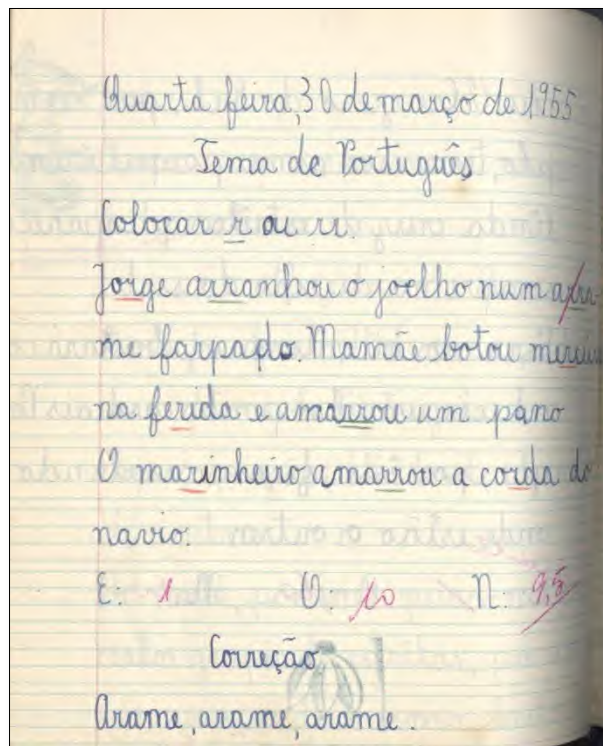 Quarta feira, 30 de março de 1955
Tema de Português
Colocar r ou rr.
Jorge arranhou o joelho num arra-
me farpado. Mamãe botou mercuro
na ferida e amarrou um pano
O marinheiro amarrou a corda do
navio.
E: 1 O: 10 N: 9,8
Correção
Arame, arame, arame.